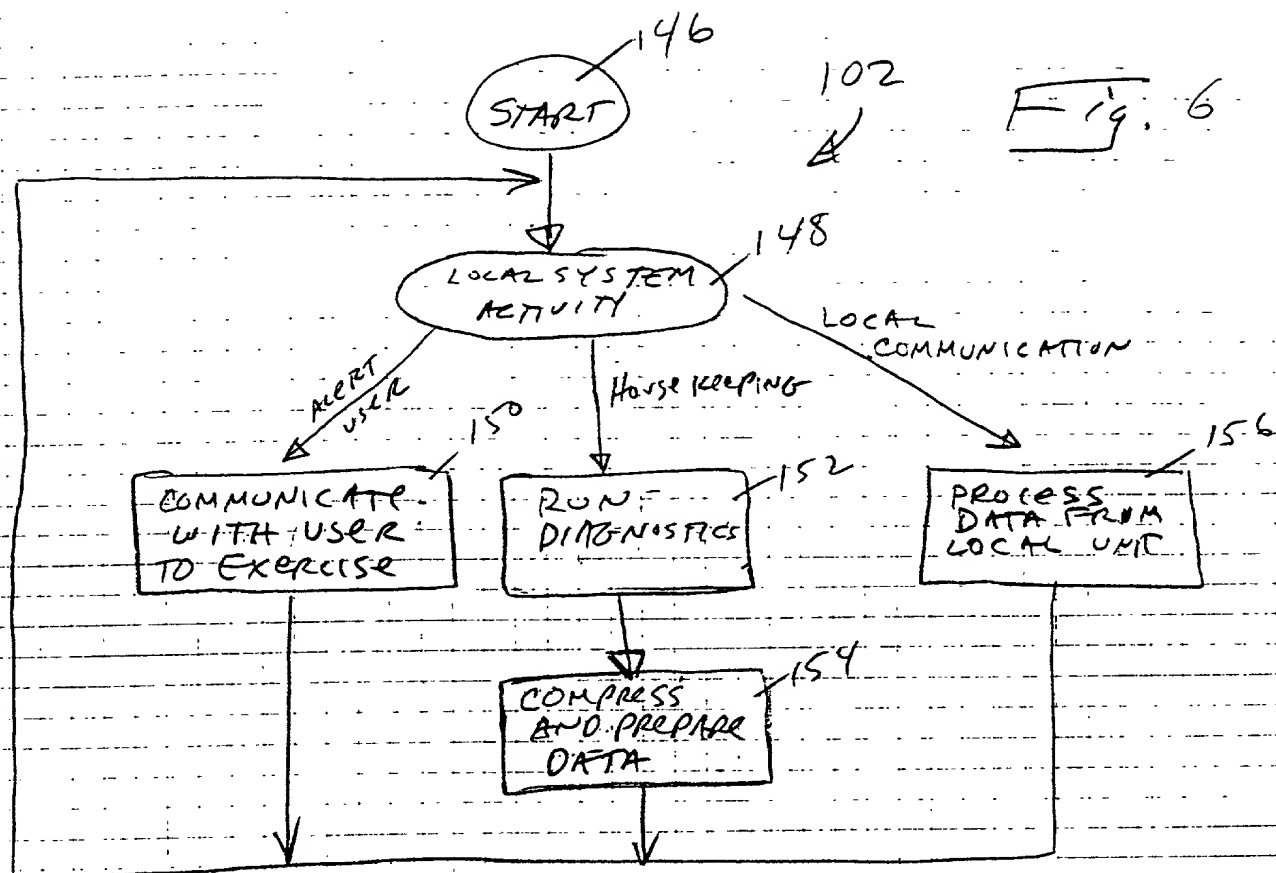 146
START
102
Fig. 6
148
LOCAL SYSTEM
ACTIVITY
LOCAL
COMMUNICATION
ALERT
USER
HouseKeepING
150
152
156
COMMUNICATE
WITH USER
TO EXERCISE
RUN
DIAGNOSTICS
PROCESS
DATA FROM
LOCAL UNIT
154
COMPRESS
AND PREPARE
DATA